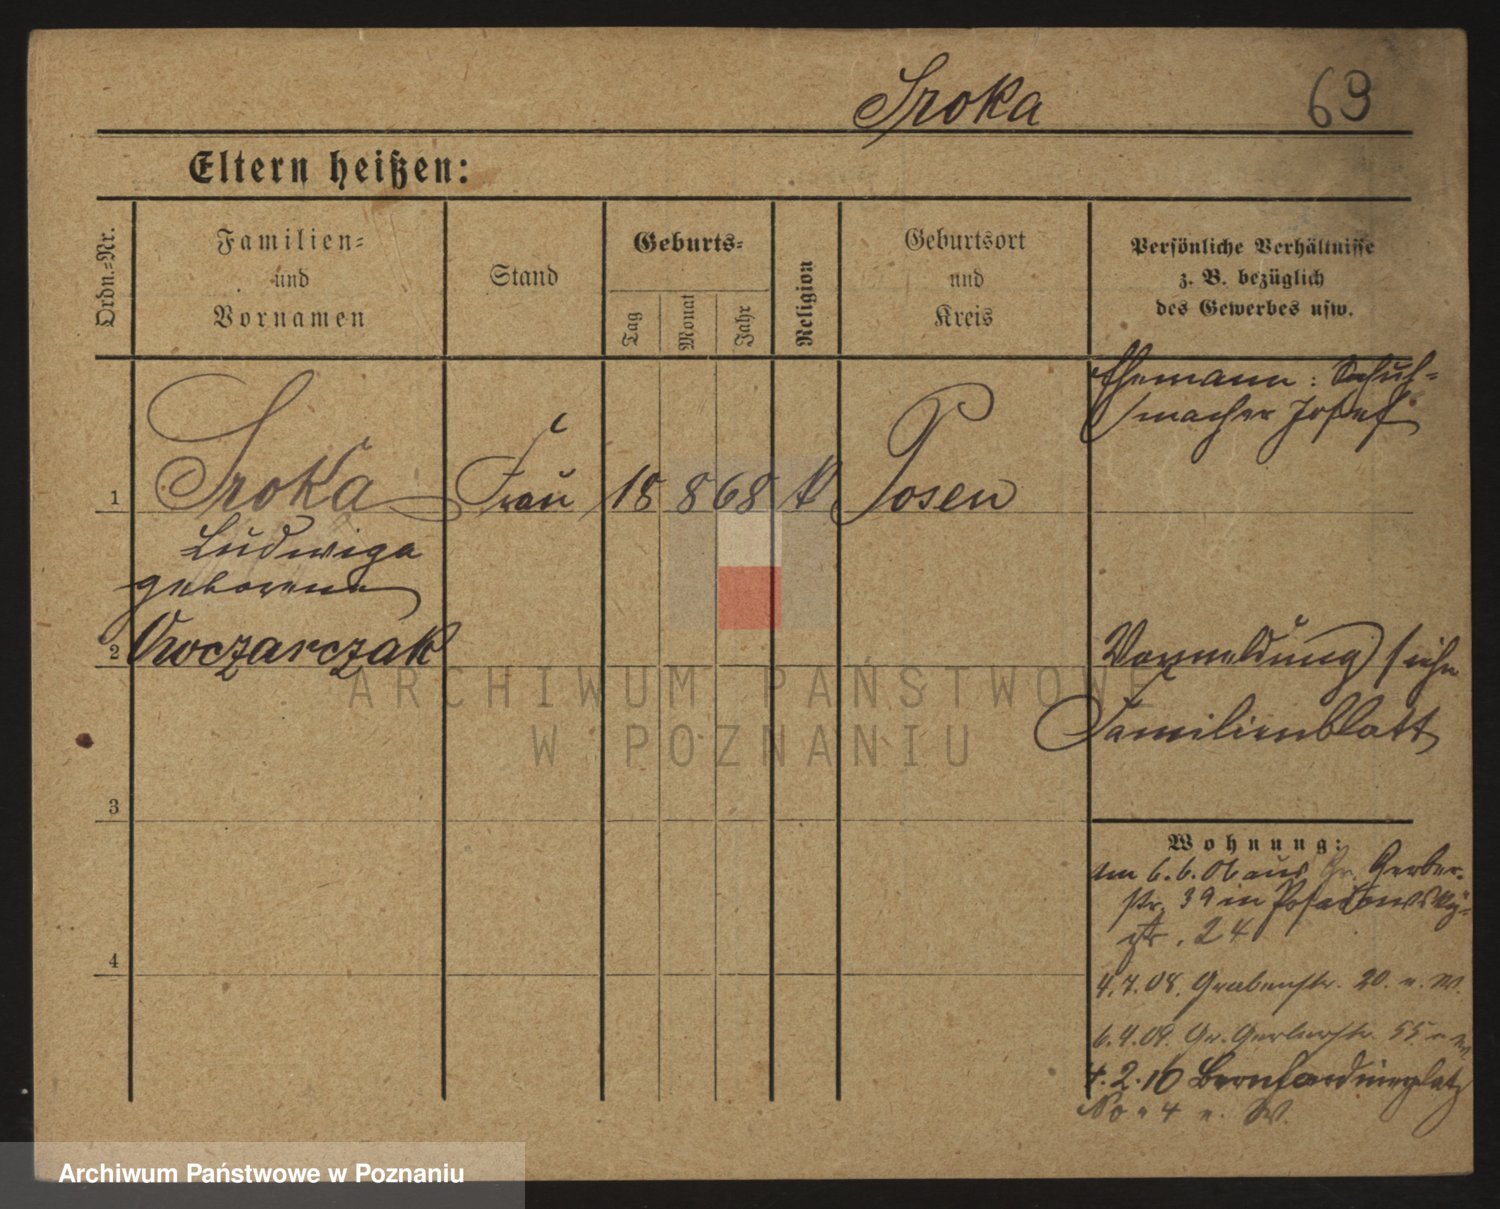 Sroka 69
Eltern heißen:
Ordn.-Nr.
Familien-
und
Vornamen
Stand
Geburts-
Tag
Monat
Jahr
Religion
Geburtsort
und
Kreis
Persönliche Verhältnisse
z. B. bezüglich
des Gewerbes usw.
Ehemann: Schuh-
macher Josef
1 Sroka Frau 18 8 68 k Posen
Ludwiga
geborene
2 Owczarczak
Vormeldung siehe
Familienblatt
ARCHIWUM PAŃSTWOWE
W POZNANIU
3
Wohnung:
am 6.6.06 aus Gr. Gerber-
str. 39 in Posadowsky-
str. 24
4
4.7.08. Grabenstr. 20. n. W.
6.4.09. Gr. Gerberstr. 55
4.2.16 Bernhardinerplatz
No 4 n. W.
Archiwum Państwowe w Poznaniu